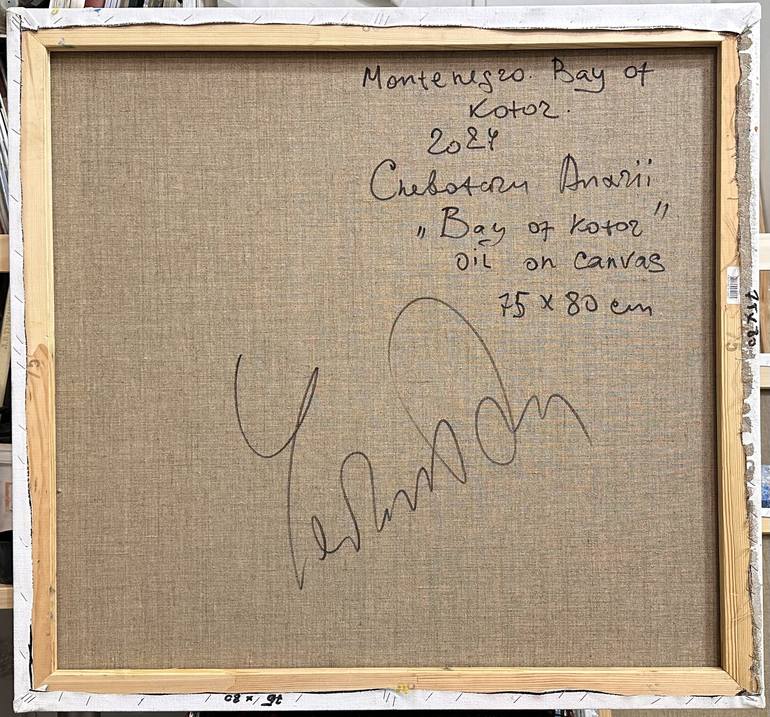 Montenegro. Bay of
Kotor.
2024
Chebotaru Andrii
„Bay of Kotor"
oil on canvas
75 x 80 cm
75 x 80
75 x 80